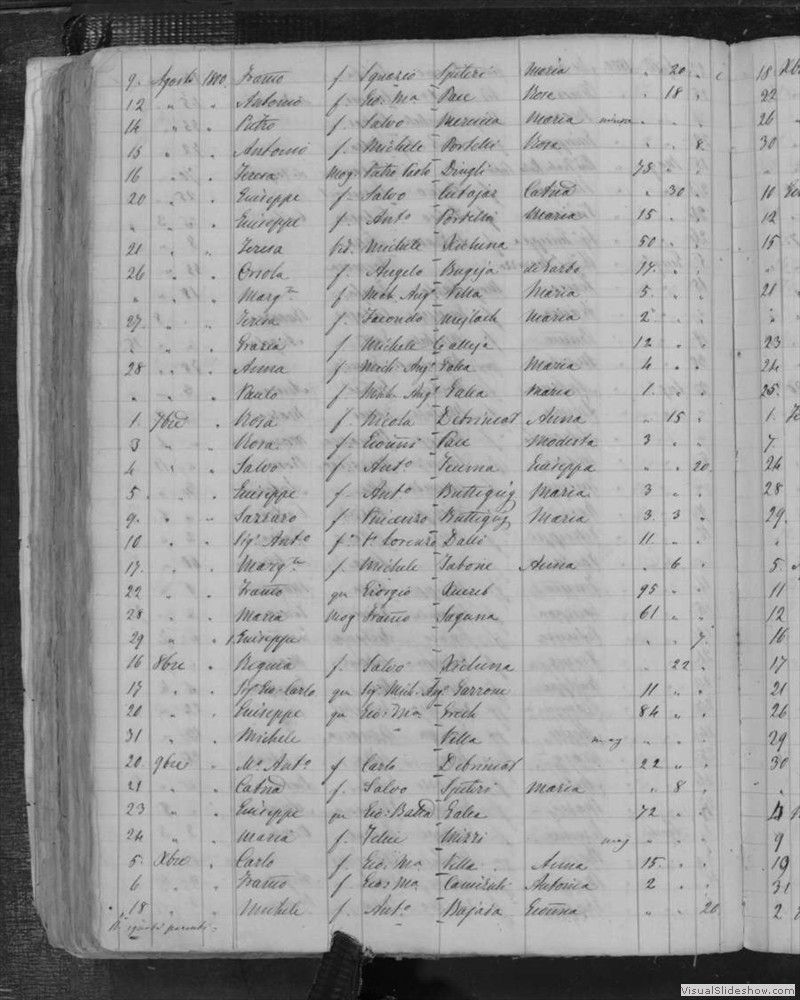 9. Agosti 1800. Franco f. Ignazio Spiteri Maria " 20 "
12 " " Antonio f. Gio: Ma Pace Rosa " 18 "
14 " " Pietro f. Salvo Mercieca Maria " " "
15 " " Antonio f. Michele Portelli Rosa " " 8
16 " " Teresa Mog Pietro Paolo Dingli 75 " "
20 " " Giuseppe f. Salvo Cutajar Catnd " 30 "
" " " Giuseppe f. Anto Portelli Maria 15 " "
21 " " Teresa Vid. Michele Xicluna 50 " "
26 " " Orsola f. Angelo Bugeja 14 " "
" " " Marga f. Mich. Ango Villa Maria 5 " "
27. " " Teresa f. Mejlach Maria 2 " "
" " " Grazia f. Michele Calleja 12 " "
28 " " Anna f. Mich. Ango Galea Maria 4 " "
" " " Paulo f. Mich. Ango Galea Maria 1. " "
1. 7bre " Rosa f. Nicola Debrincat Anna " 15 "
3 " " Rosa f. Gioanni Pace Modesta 3 " "
4 " " Salvo f. Anto Giuseppa " " 20
5. " " Giuseppe f. Anto Buttigieg Maria 3 " "
9. " " Lazzaro f. Vincenzo Buttigieg Maria 3. 3 "
10 " " Sigr Anto f. Sr Lorenzo Dalli 11 " "
17. " " Marga f. Michele Tabone Anna " 6 "
22 " " Franco qm Giorgio Xuereb 95 " "
28 " " Maria Mog Franco Saguna 61 " "
29 " 1. Giuseppe " " 7.
16 8bre " Regina f. Salvo Xicluna " 22 "
17 " " Sigr Gio Carlo qm Sigr Mich. Ango Garrone 11 " "
20 " " Giuseppe qm Gio: Ma Grech 84 " "
31 " " Michele Villa " " "
20. 9bre " Mo Anto f Carlo Debrincat 22 " "
21 " " Catnd f. Salvo Spiteri Maria " 8 "
23 " " Giuseppe qm Gio: Batta Galea 72 " "
24 " " Maria f. Felice Mizzi " " "
5. Xbre " Carlo f Gio: Ma Villa Anna 15. " "
6 " " Franco f Gio: Ma Camenzuli Antonia 2 " "
18 " " Michele f. Anto Bajada Gioanna " " 20
18 Xbr
22
26
30
10
12
15
21
23
24
25.
1.
7.
24
28
29.
5.
11
12
16
17
21
26
29
30
4
9
19
31
2
VisualSlideshow.com